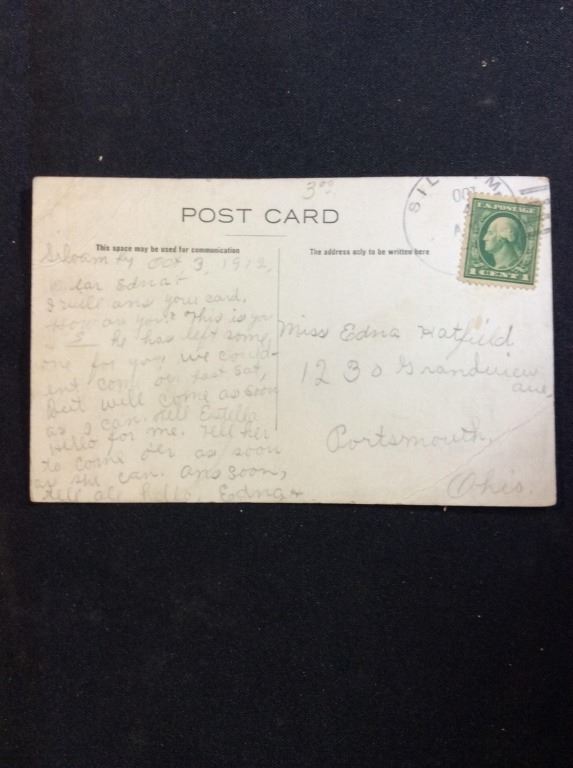 3.00
POST CARD
This space may be used for communication
The address only to be written here
SIL M
OCT
U.S. POSTAGE
1 CENT 1
Siloam Ky Oct 3, 1912,
Dear Edna+
I will ans your card,
How are you? This is
he has left some
one for you we could-
ent come over last Sat,
But will come as soon
as I can. Tell Estella
Hello for me. Tell her
to come over as soon
as she can. Ans soon,
tell all hello, Edna+
Miss Edna Hatfield
1230 Grandview
ave,
Portsmouth,
Ohio.